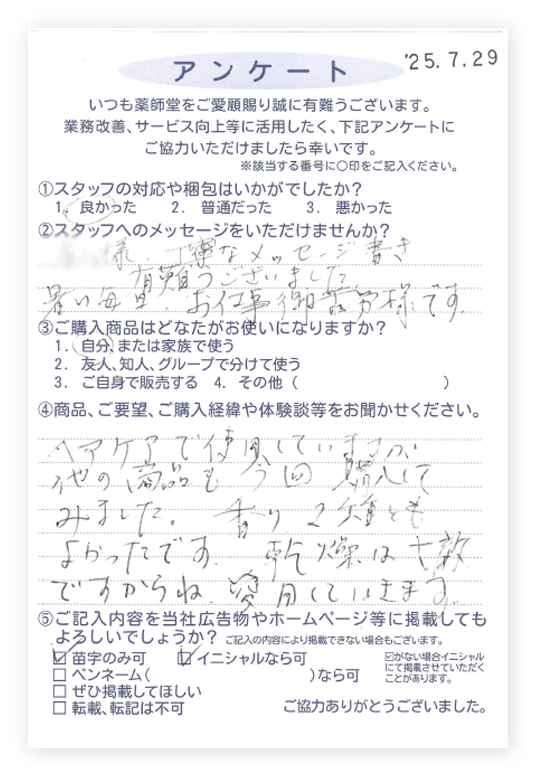 '25.7.29
アンケート
いつも薬師堂をご愛顧賜り誠に有難うございます。
業務改善、サービス向上等に活用したく、下記アンケートに
ご協力いただけましたら幸いです。
※該当する番号に○印をご記入ください。
①スタッフの対応や梱包はいかがでしたか?
1. 良かった 2. 普通だった 3. 悪かった
②スタッフへのメッセージをいただけませんか?
様、丁寧なメッセージ書き
有難うございました
暑い毎日、お仕事御苦労様です。
③ご購入商品はどなたがお使いになりますか?
1. 自分、または家族で使う
2. 友人、知人、グループで分けて使う
3. ご自身で販売する 4. その他( )
④商品、ご要望、ご購入経緯や体験談等をお聞かせください。
ヘアケアで使用していますが
他の商品も今回購入して
みました。香り2種とも
よかったです。乾燥は大敵
ですからね、愛用していきます。
⑤ご記入内容を当社広告物やホームページ等に掲載しても
よろしいでしょうか? ご記入の内容により掲載できない場合もございます。
☑ 苗字のみ可 ☑ イニシャルなら可
☑がない場合イニシャル
にて掲載させていただく
ことがあります。
□ ペンネーム( )なら可
□ ぜひ掲載してほしい
□ 転載、転記は不可
ご協力ありがとうございました。